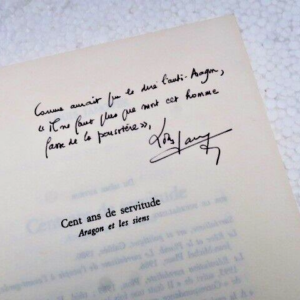 Comme aurait pu le dire l'anti-Aragon,
« Il ne faut pas que mort cet homme
fasse de la poussière »,
Cent ans de servitude
Aragon et les siens